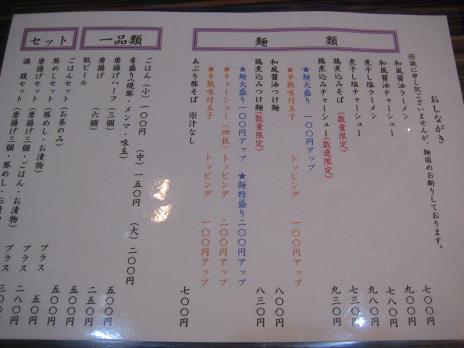 おしながき
※誠に申し訳ございませんが、麺固めお断りしております。
麺 類
和風醤油ラーメン 七〇〇円
和風醤油チャーシュー 九〇〇円
煮干し塩ラーメン 七八〇円
煮干し塩チャーシュー 九八〇円
鶏煮込みそば(数量限定) 七三〇円
鶏煮込みチャーシュー(数量限定) 九三〇円
★麺大盛り 一〇〇円アップ
★半熟味付玉子 トッピング 一〇〇円アップ
和風醤油つけ麺 八〇〇円
鶏煮込みつけ麺(数量限定) 八三〇円
★麺大盛り 一〇〇円アップ ★麺特盛り 二〇〇円アップ
★チャーシュー(四枚) トッピング 二〇〇円アップ
★半熟味付玉子 トッピング 一〇〇円アップ
あぶり豚そば ※汁なし 七〇〇円
一品類
ごはん (小)一〇〇円 (中)一五〇円 (大)二〇〇円
肴盛り(焼豚・メンマ・味玉) 五〇〇円
唐揚げハーフ(三個) 二五〇円
唐揚げ (六個) 五〇〇円
瓶ビール
セット
ごはんセット(お昼のみ)
豚めしセット(豚めし・お漬物) プラス
唐揚げセット(唐揚げ三個・ごはん・お漬物) プラス
満腹セット(唐揚げ三個・豚めし・お漬物) プラス